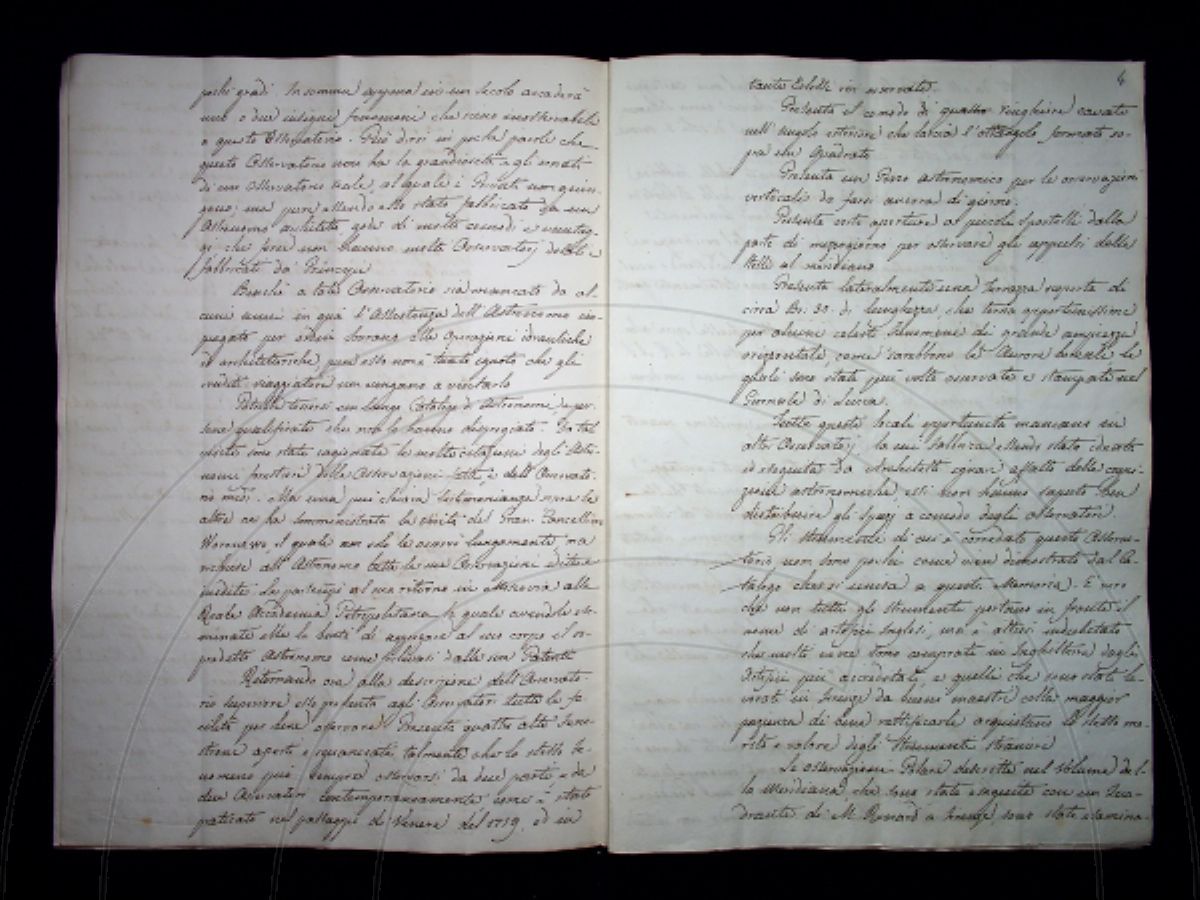 pochi gradi. In somma appena in un secolo accaderà
uno o due insigni fenomeni che sieno inosservabili
a questo Osservatorio. Può dirsi in poche parole che
questo Osservatorio non ha la grandiosità e gli ornati
di un Osservatorio reale, al quale i Privati non giun-
gono; ma pure essendo esso stato fabbricato da un
Astronomo architetto, gode di molti comodi e vantag-
gi che forse non hanno molti Osservatorj
fabbricati da' Principi
Benchè a tale Osservatorio sia mancato da al-
cuni anni in qui l'Assistenza dell'Astronomo im-
piegato per ordine Sovrano alle Operazioni idrauliche
ed architettoniche, pure esso non è tanto ignoto che gli
eruditi viaggiatori non vengano a visitarlo
Potrebbe tessersi un lungo Catalogo di Astronomi e per-
sone qualificate che non lo hanno disprezzato. Da tal
visita sono state cagionate le molte citazioni degli Astro-
nomi forestieri delle Osservazioni fatte, e dell'Osservato-
rio medº. Ma una più chiara testimonianza sopra le
altre ne ha somministrata la visita del Gran Cancelliere
Woronzow, il quale non solo lo osservò lungamente ma
richiese all'Astronomo tutte le sue Osservazioni edite e
inedite. Le partecipò al suo ritorno in Moscovia alla
Reale Accademia Petropolitana la quale avendole esa-
minate ebbe la bontà di aggregare al suo corpo il so-
pradetto Astronomo come rilevasi dalla sua Patente
Ritornando ora alla descrizione dell'Osservato-
rio superiore esso presenta agli Osservatori tutta la fa-
cilità per bene osservare. Presenta quattro alte fene-
strone aperte e squarciate talmente che lo stesso fe-
nomeno può sempre osservarsi da due parti e da
due Osservatori contemporaneamente come è stato
praticato nel passaggio di Venere del 1759. ed in
4
tante Eclissi ivi osservate.
Presenta il comodo di quattro ringhiere cavate
nell'angolo esteriore che lascia l'ottangolo formato so-
pra un Quadrato
Presenta un Pozzo astronomico per le osservazioni
verticali da farsi ancora di giorno.
Presenta certe aperture a piccoli sportelli dalla
parte di mezzogiorno per osservare gli appulsi delle
stelle al meridiano
Presenta lateralmente una terrazza scoperta di
circa Br. 30. di lunghezza che torna opportunissima
per alcuni celesti fenomeni di grande ampiezza
orizzontale, come sarebbero le Aurore boreali le
quali sono state più volte osservate e stampate nel
Giornale di Lucca.
Tutte queste locali opportunità mancano in
altri Osservatorj la cui fabbrica essendo stata ideata
ed eseguita da Architetti ignari affatto delle cogni-
zioni astronomiche, essi non hanno saputo ben
distribuire gli spazj a comodo degli osservatori.
Gli Strumenti di cui è corredato questo Osserva-
torio non sono pochi come vien dimostrato dal Ca-
talogo che si unisce a questa Memoria. È vero
che non tutti gli Strumenti portano in fronte il
nome di artefici Inglesi, ma è altresì indubitato
che molti ve ne sono comprati in Inghilterra dagli
Artefici più accreditati, e quelli che sono stati la-
vorati in Firenze da buoni maestri colla maggior
pazienza di ben rettificarli acquistano lo stesso me-
rito e valore degli Strumenti stranieri
Le osservazioni Polari descritte nel Volume del-
la Meridiana che sono state eseguite con un Qua-
drante di M. a Firenze sono state esamina-